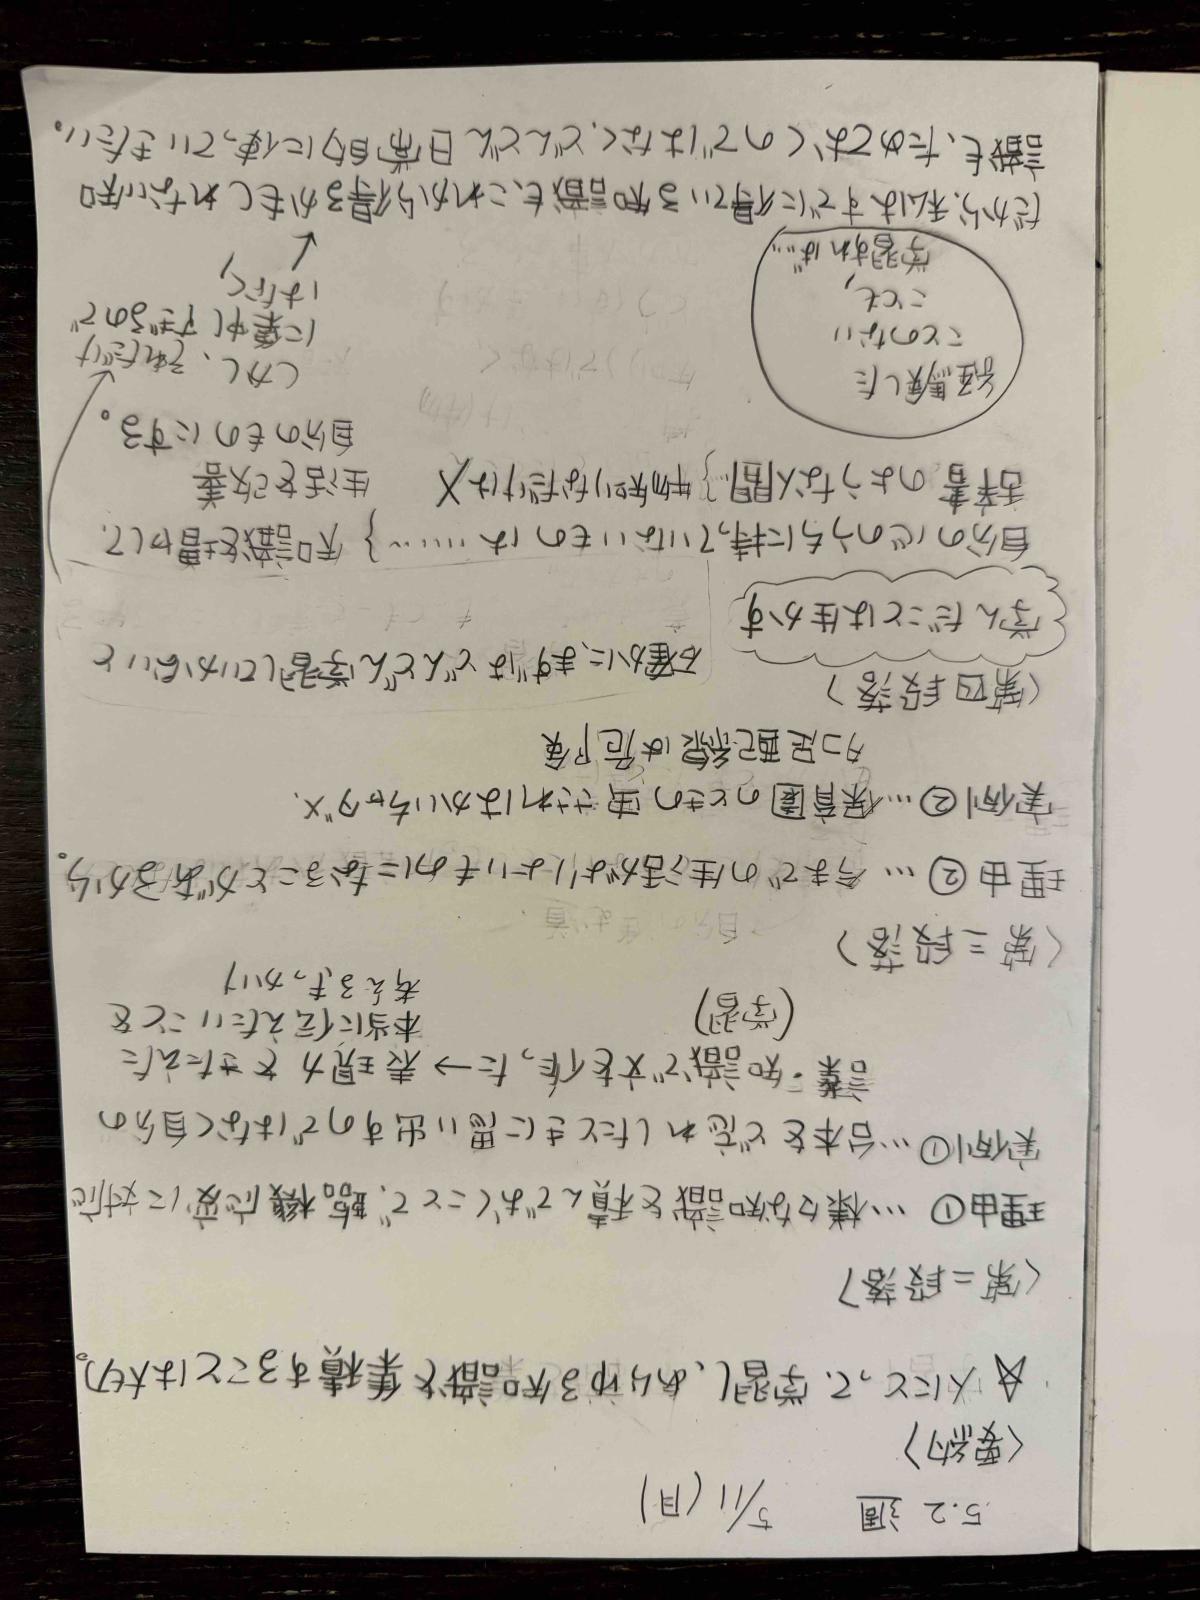 5.2週 5/11(月)
〈要約〉
☆人にとって、学習し、あらゆる知識を集積することは大切。
〈第二段落〉
理由①…様々な知識を積んでおくことで、臨機応変に対応
実例①…台本をど忘れしたときに思い出すのではなく自分の
言葉・知識で文を作った→表現力をきたえた
(学習)
本当に伝えたいことを
考えるきっかけ
〈第三段落〉
理由②…今までの生活がよりよいものになることがあるから。
実例②…保育園のときの虫さされはかいちゃダメ、
タコ足配線は危険
〈第四段落〉
学んだことは生かす
確かに、まずはどんどん学習していかないと
自分の心のうちに持っていないものは……} 知識を増やして、
辞書のような人間…} 物知りなだけは× 生活を改善
自分のものにする。
経験した
ことのない
ことも、
学習すれば…
しかし、それだけ
に集中しすぎるので
はなく、
だから、私はすでに得ている知識も、これから得るかもしれない知
識も、ためておくのではなく、どんどん日常自分に使っていきたい。